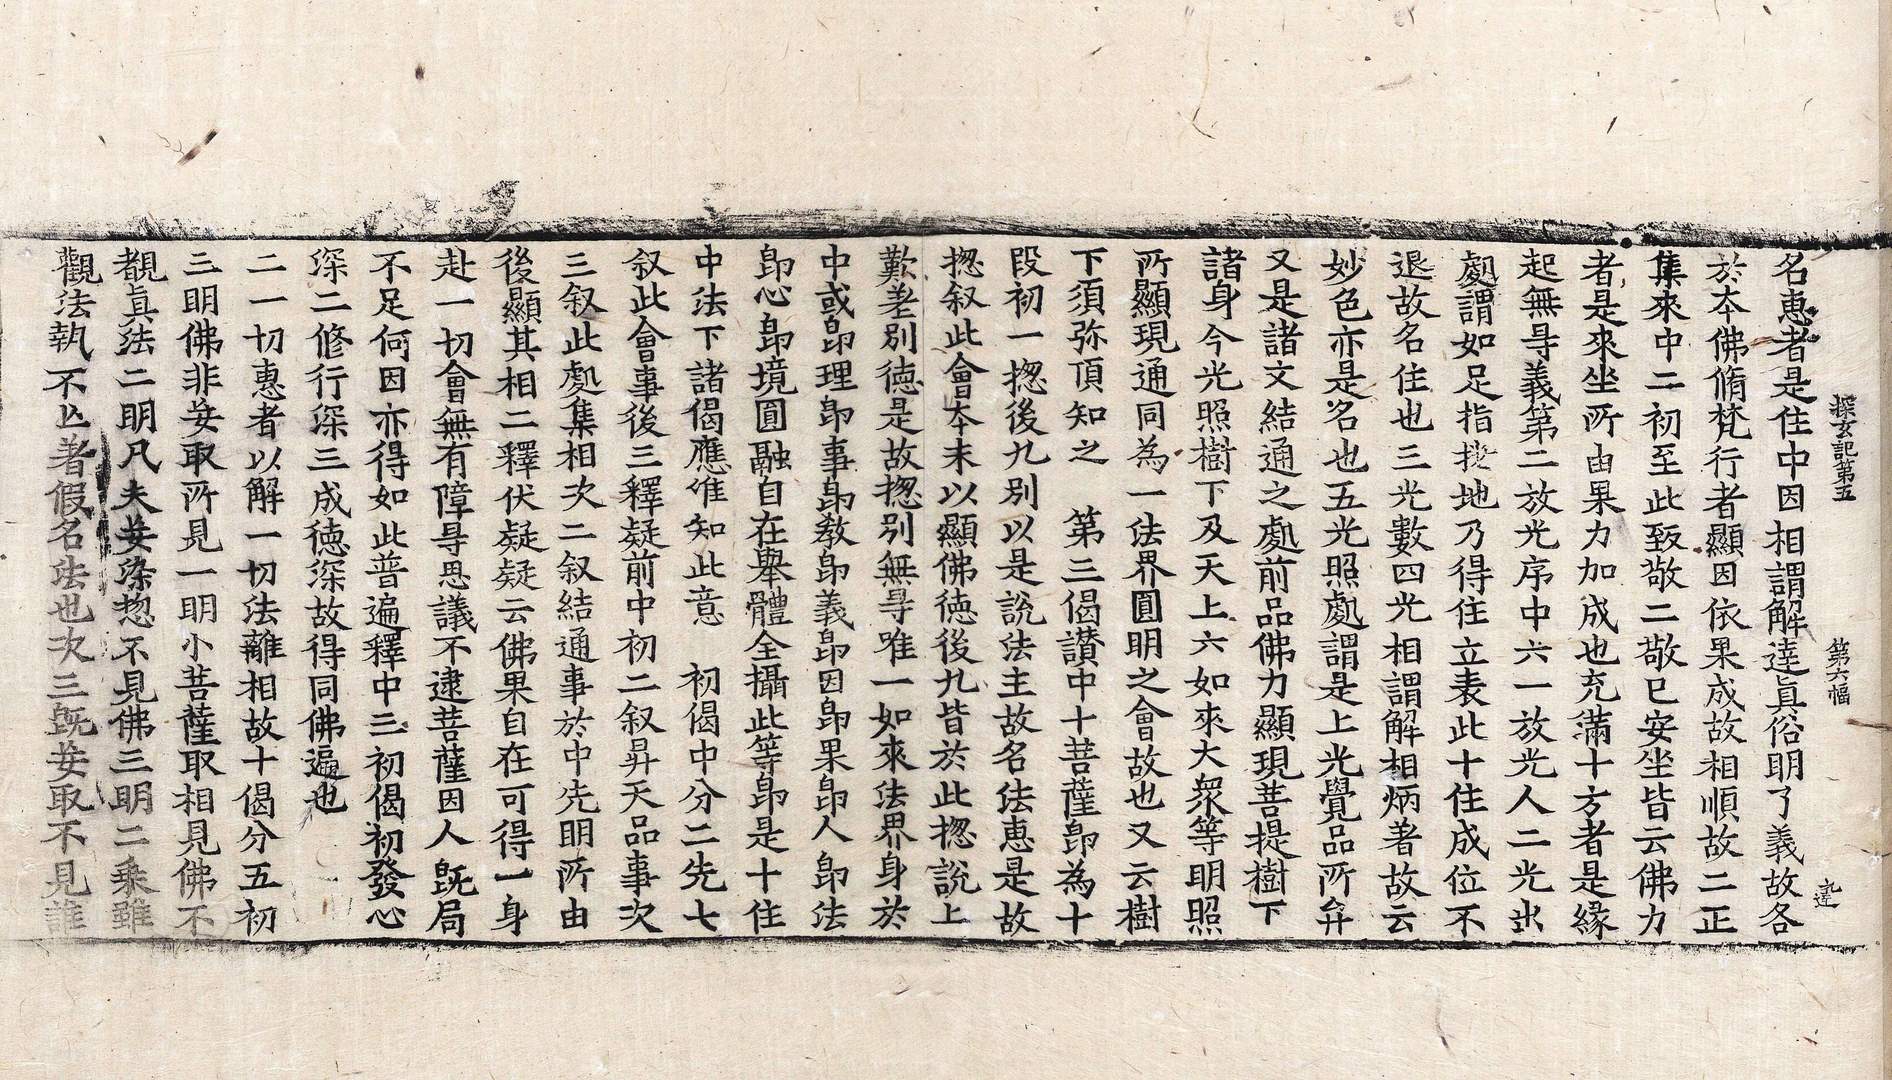 探玄記第五 第六幅 達
名惠者是住中因相謂解達眞俗明了義故各
於本佛脩梵行者顯因依果成故相順故二正
集來中二初至此致敬二敬已安坐皆云佛力
者是來坐所由果力加成也充滿十方者是緣
起無㝵義第二放光序中六一放光人二光出
處謂如足指按地乃得住立表此十住成位不
退故名住也三光數四光相謂解相炳著故云
妙色亦是名也五光照處謂是上光覺品所弁
又是諸文結通之處前品佛力顯現菩提樹下
諸身今光照樹下及天上六如來大衆等明照
所顯現通同為一法界圓明之會故也又云樹
下須弥頂知之 第三偈讃中十菩薩卽為十
段初一揔後九別以是說法主故名法惠是故
揔叙此會本末以顯佛德後九皆於此揔說上
歎差別德是故揔別無㝵唯一如來法界身於
中或卽理卽事卽教卽義卽因卽果卽人卽法
卽心卽境圓融自在舉體全攝此等卽是十住
中法下諸偈應准知此意 初偈中分二先七
叙此會事後三釋疑前中初二叙昇天品事次
三叙此處集相次二叙結通事於中先明所由
後顯其相二釋伏疑疑云佛果自在可得一身
赴一切會無有障㝵思議不逮菩薩因人旣局
不足何因亦得如此普遍釋中三初偈初發心
深二修行深三成德深故得同佛遍也
二一切惠者以解一切法離相故十偈分五初
三明佛非妄取所見一明小菩薩取相見佛不
覩眞法二明凡夫妄染惣不見佛三明二乗雖
觀法執不亡著假名法也次三旣妄取不見誰